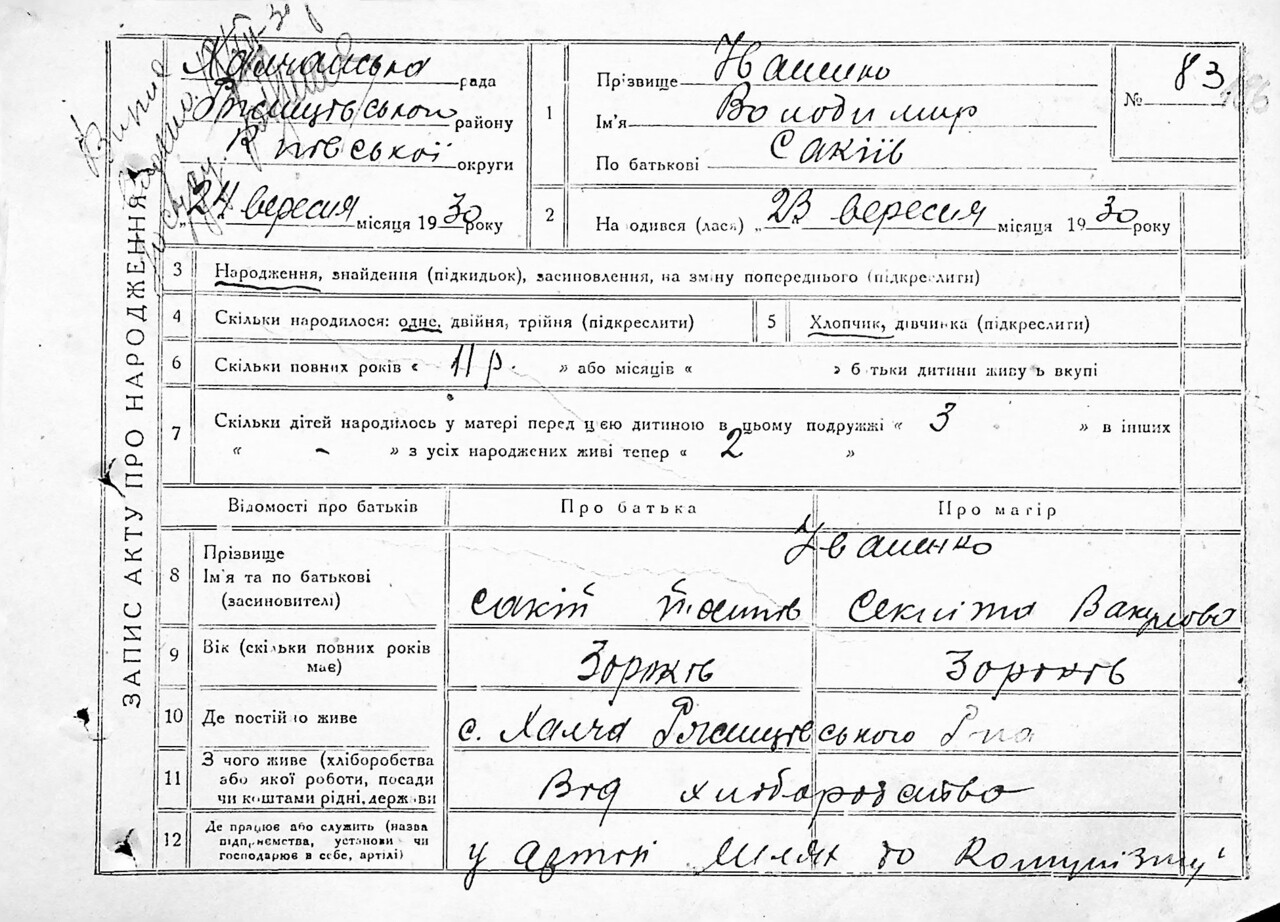 ЗАПИС АКТУ ПРО НАРОДЖЕННЯ
Халчанська рада
Ржищівського району
Київської округи
„24 вересня місяця 1930 року
1
Прізвище Іваненко
Ім'я Володимир
По батькові Сакіїв
№ 83
2
Народився (лася) „23 „ вересня місяця 1930 року
3 Народження, знайдення (підкидьок), засиновлення, на зміну попереднього (підкреслити)
4 Скільки народилося: одне, двійня, трійня (підкреслити)
5 Хлопчик, дівчинка (підкреслити)
6 Скільки повних років « 11 р. » або місяців « » батьки дитини живуть вкупі
7 Скільки дітей народилось у матері перед цією дитиною в цьому подружжі « 3 » в інших
« – » з усіх народжених живі тепер « 2 »
Відомості про батьків Про батька Про матір
8 Прізвище
Ім'я та по батькові
(засиновителі)
Іваненко
Сакій
Секлита Вакулова
9 Вік (скільки повних років
має)
30 років 30 років
10 Де постійно живе с. Халча Ржищівського р-на
11 З чого живе (хліборобства
або якої роботи, посади
чи коштами рідні, держави
Від хліборобства
12 Де працює або служить (назва
підприємства, установи чи
господарює в себе, артілі)
у Артілі Шлях до Комунізму